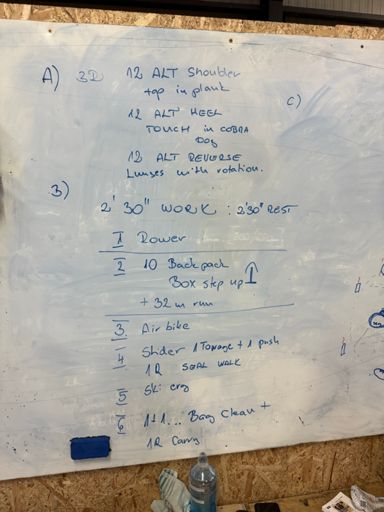 A) 3D 12 ALT Shoulder
tap in plank
C)
12 ALT HEEL
TOUCH in COBRA
Dog
12 ALT REVERSE
Lunges with rotation.
B)
2' 30" WORK : 2'30" REST
1 Rower
2 10 Backpack
Box step up
+ 32 m run
3 Air bike
4 Slider 1 + 1 push
1R SEAL WALK
5 Ski erg
6 1+1... Bag Clean +
1R Carry